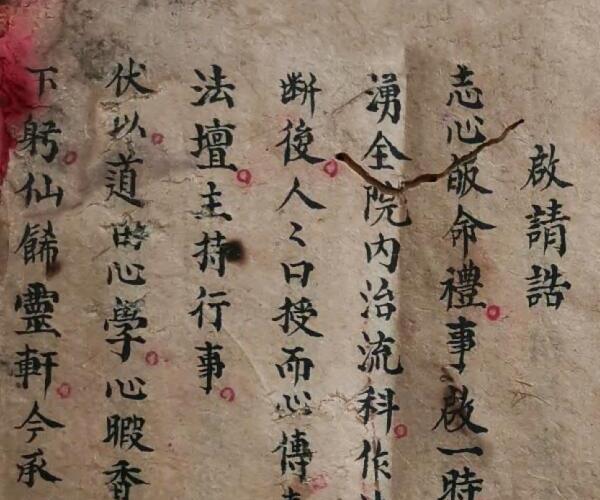 啟請誥
志心皈命禮事啟一時
湧全院內治流科作
斷後人々口授而心傳
法壇主持行事
伏以道的心學心暇香
下躬仙餙靈軒今承